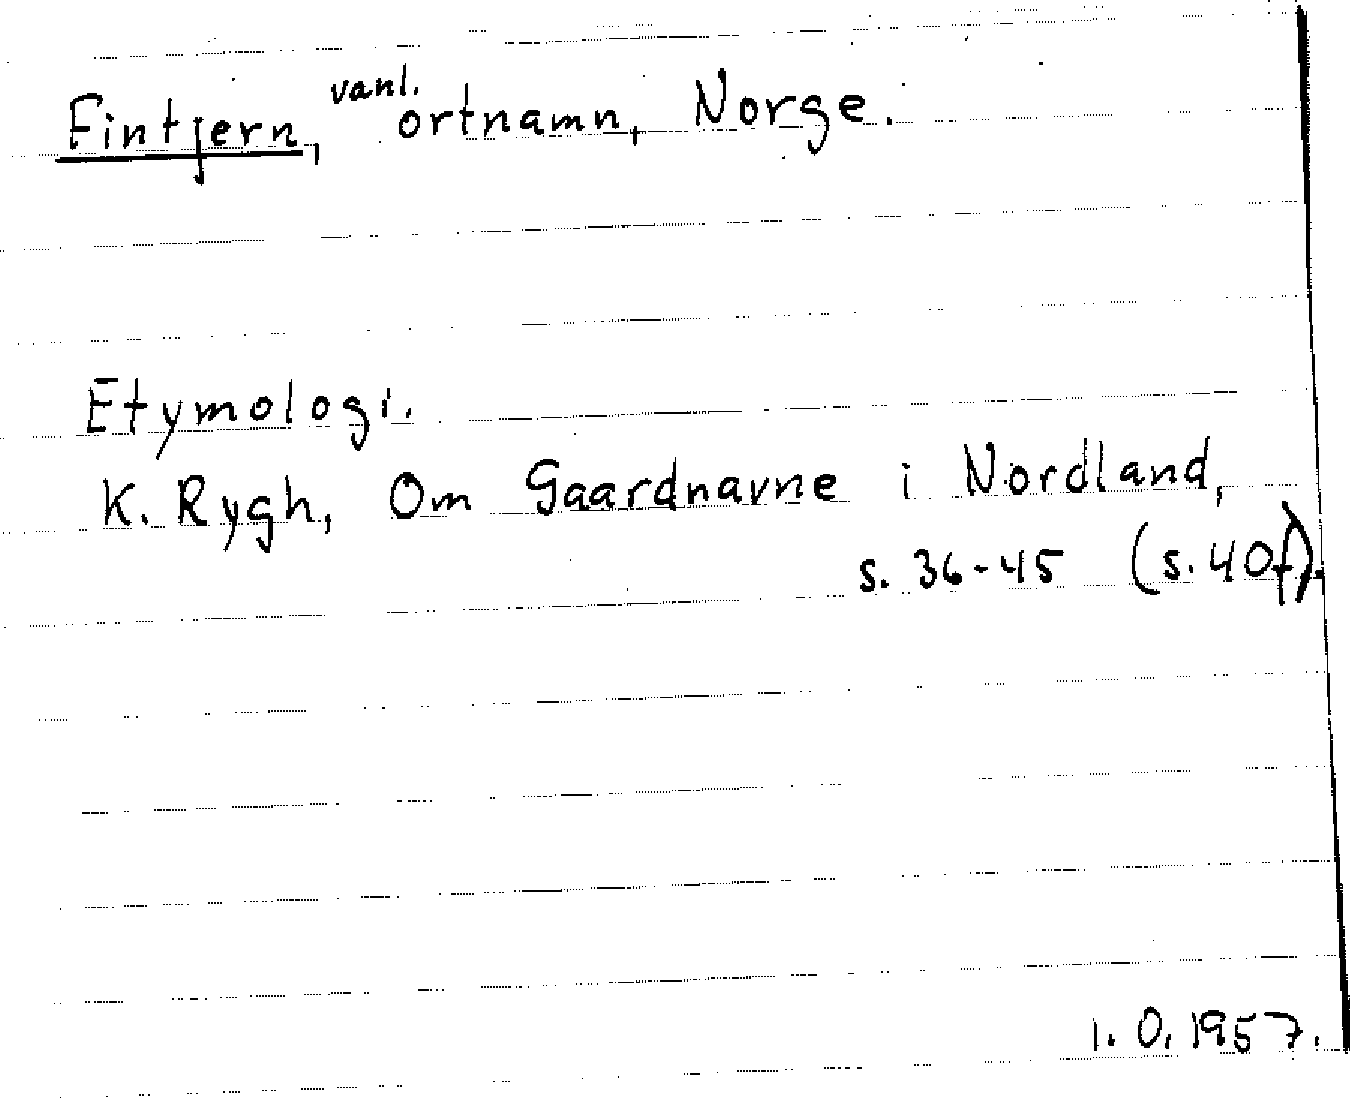 Fintjern, vanl. ortnamn, Norge.
Etymologi.
K. Rygh, Om Gaardnavne i Nordland,
s. 36-45 (s. 40f).
1. O. 1957.